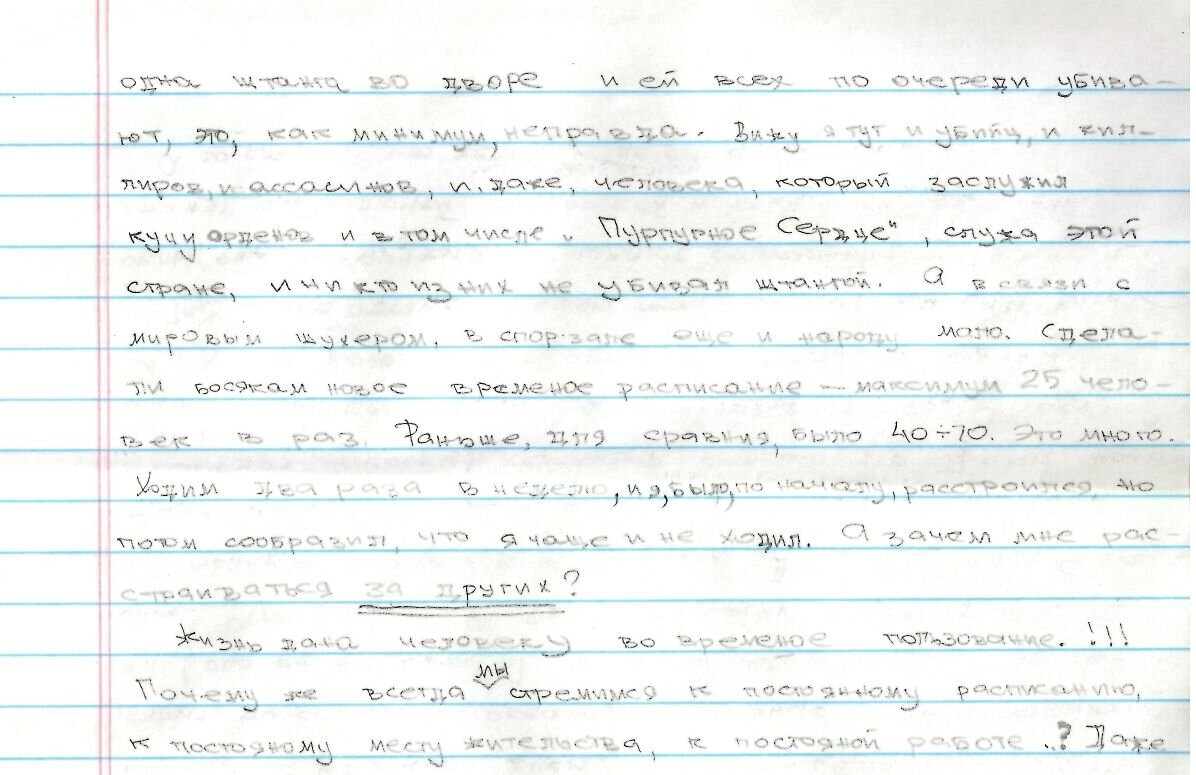 одна штанга во дворе и ей всех по очереди убива-
ют, это, как минимум, неправда. Вижу я тут и убийц, и кил-
леров, и ассасинов, и, даже, человека, который заслужил
кучу орденов и в том числе „Пурпурное Сердце“, служа этой
стране, и никто из них не убивал штангой. А в связи с
мировым шухером, в спор.зале еще и народу мало. Сдела-
ли босякам новое временое расписание – максимум 25 чело-
век в раз. Раньше, для сравния, было 40÷70. Это много.
Ходим два раза в неделю, и я, было, по началу, расстроился, но
потом сообразил, что я чаще и не ходил. А зачем мне рас-
страиваться за других?
Жизнь дана человеку во временое пользование. !!!
Почему же всегда мы стремимся к постоянному расписанию,
к постояному месту жительства, к постояной работе ..? Даже